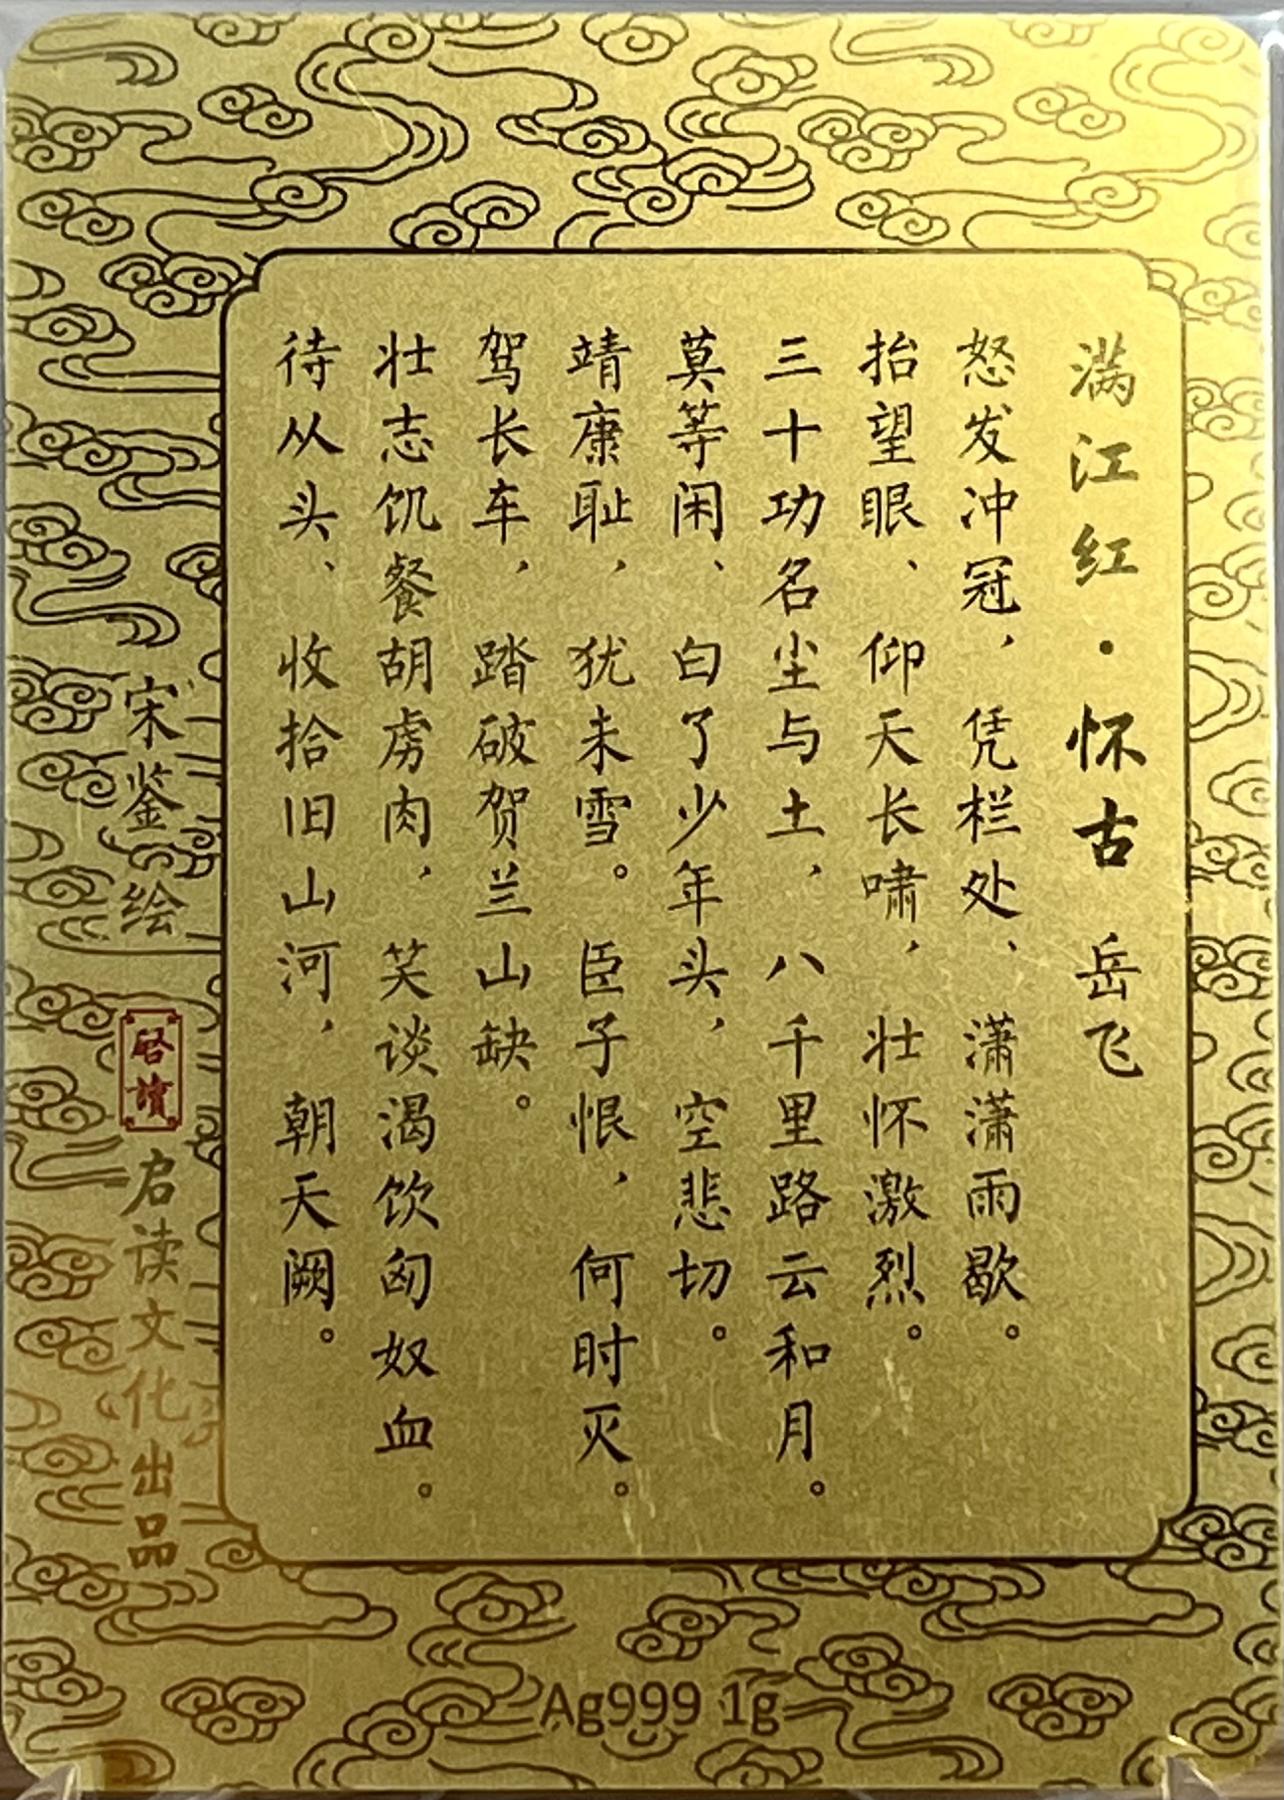 满江红·怀古 岳飞
怒发冲冠，凭栏处、潇潇雨歇。
抬望眼、仰天长啸，壮怀激烈。
三十功名尘与土，八千里路云和月。
莫等闲、白了少年头，空悲切。
靖康耻，犹未雪。臣子恨，何时灭。
驾长车，踏破贺兰山缺。
壮志饥餐胡虏肉，笑谈渴饮匈奴血。
待从头、收拾旧山河，朝天阙。
宋鉴绘
启读
启读文化出品
Ag999 1g